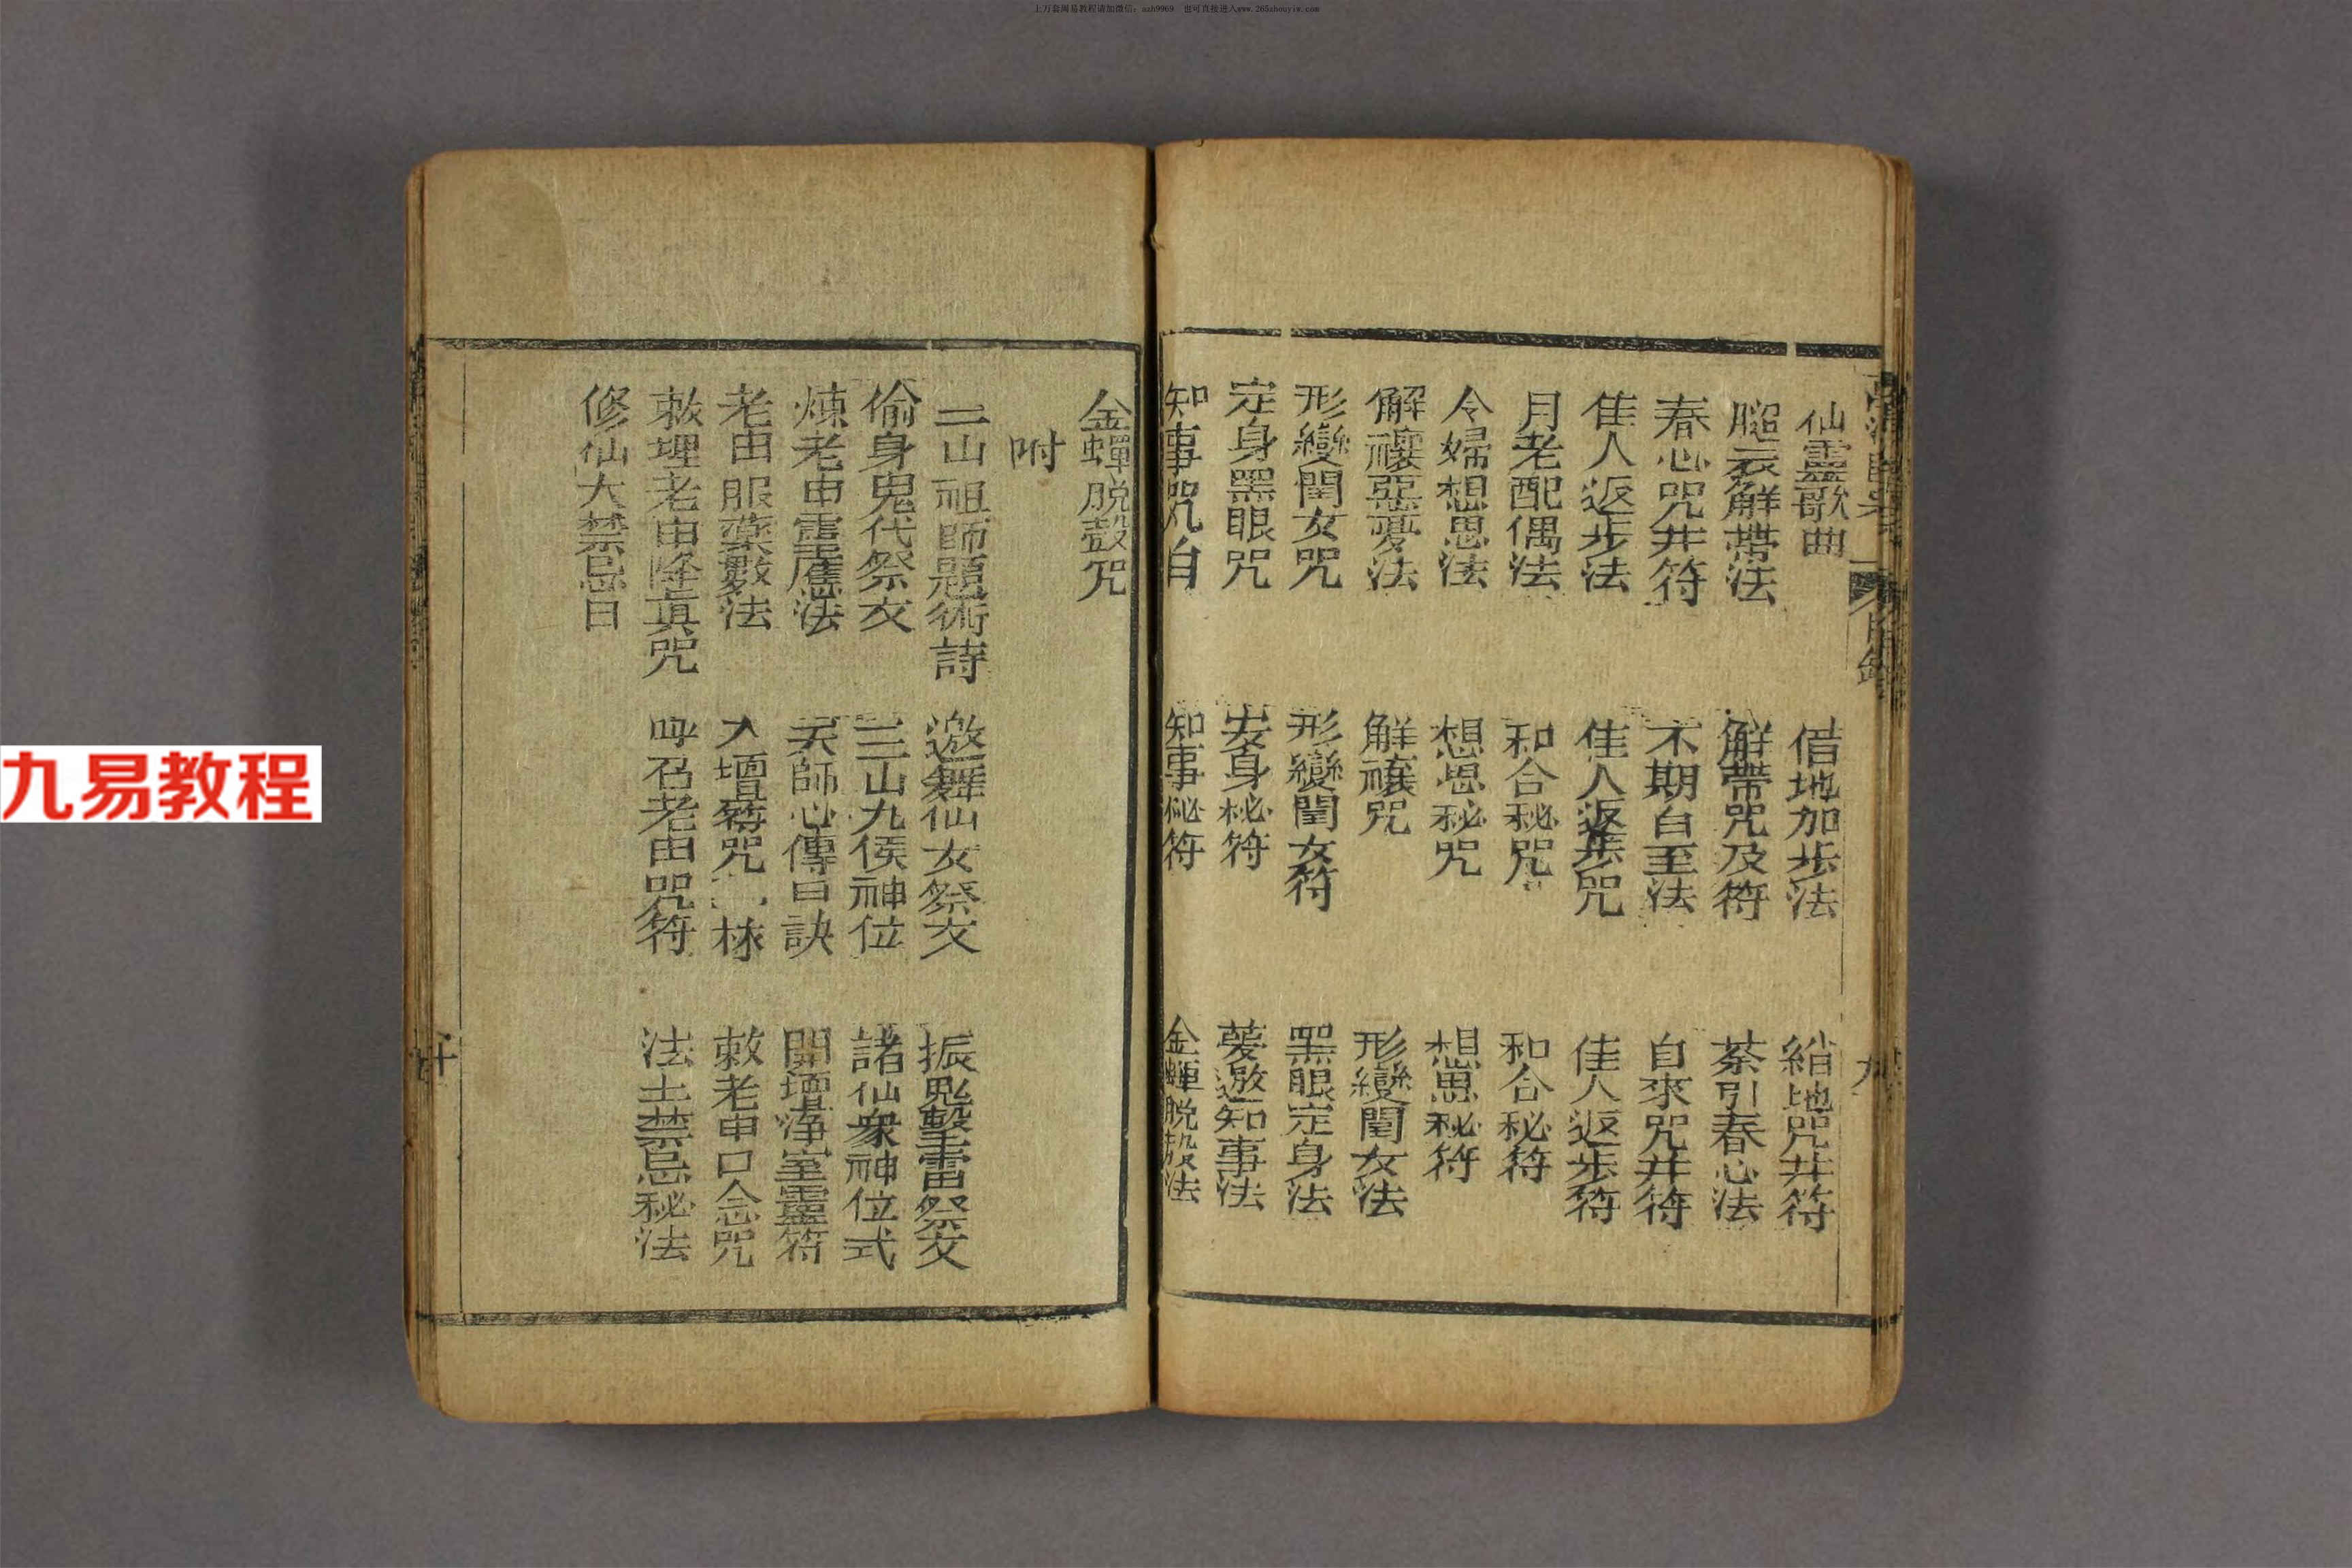 上万套周易教程请加微信：axh9969　也可直接进入www.265zhouyiw.com
九易教程
仙靈歌曲　借地加步法　縮地咒并符
解帶法　解帶咒及符　茶引春心法
春心咒并符　不期自至法　自來咒并符
佳人返步法　佳人返步咒　佳人返步符
月老配偶法　和合秘咒　和合秘符
令婦想思法　想思秘咒　想思秘符
解禳惡夢法　解禳咒　形變閨女法
形變閨女咒　形變閨女符　黑眼定身法
定身黑眼咒　安身秘符　夢邀知事法
知事咒自　知事秘符　金蟬脱殼法
九
金蟬脱殼咒
附
三山祖師題術詩　邀舞仙女祭文　振鬼擊雷祭文
偷身鬼代祭文　三山九侯神位　諸仙衆神位式
煉老由靈應法　天師心傳日訣　開壇淨室靈符
老由服藥數法　入壇簪咒　敕老由口念咒
敕埋老由降真咒　呼召老由咒符　法土禁忌秘法
修仙大禁忌日
十